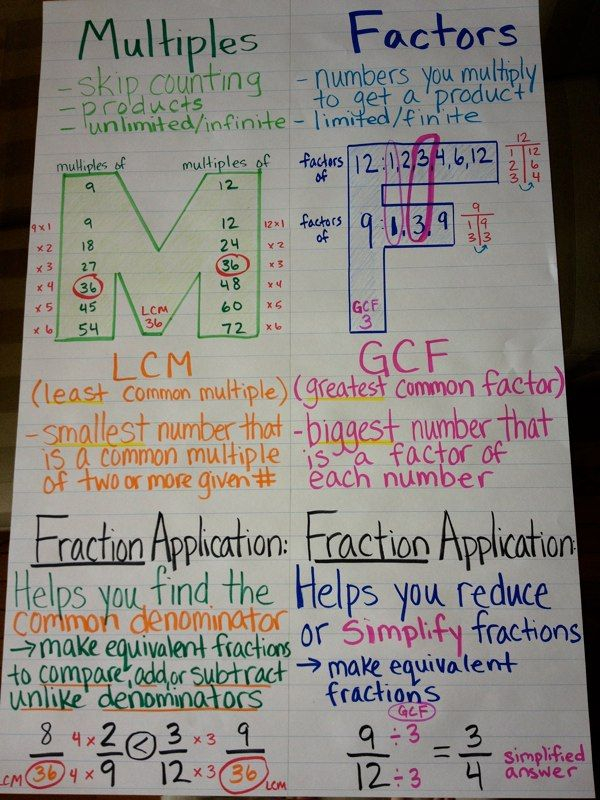 Multiples
- skip counting
- products
- unlimited/infinite
multiples of
9
multiples of
12
9x1 9 12 12x1
x2 18 24 x2
x3 27 36 x3
x4 36 48 x4
x5 45 60 x5
x6 54 72 x6
LCM
36
LCM
(least common multiple)
- smallest number that
is a common multiple
of two or more given #
Fraction Application:
Helps you find the
common denominator
→ make equivalent fractions
to compare, add, or subtract
unlike denominators
8 4 x 2 < 3 x 3 9
LCM 36 4 x 9 12 x 3 36 LCM
Factors
- numbers you multiply
to get a product
- limited/finite
factors
of
12: 1, 2, 3, 4, 6, 12
12
1 12
2 6
3 4
factors
of
9: 1, 3, 9
9
1 9
3 3
GCF
3
GCF
(greatest common factor)
- biggest number that
is a factor of
each number
Fraction Application:
Helps you reduce
or Simplify fractions
→ make equivalent
fractions
GCF
9 ÷ 3 = 3
12 ÷ 3 4
simplified
answer